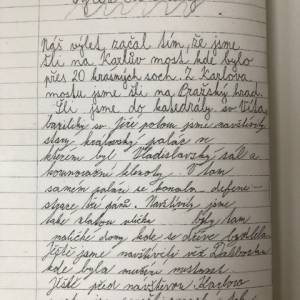 Náš výlet začal tím, že jsme
šli na Karlův most kde bylo
přes 20 krásných soch. Z Karlova
mostu jsme šli na Pražský hrad.
Šli jsme do katedrály sv Víta
baziliky sv. Jiří potom jsme navštívily
starý královský palác ve
kterém byl Vladislavský sál a
korunovační klenoty. V tom
samém paláci se konala defene-
strace
také zlatou uličku byly tam
maličké domy kde se dříve bydlelo
Ještě jsme navštívili věž Daliborka
kde byla
Ještě před návštěvou Karlova